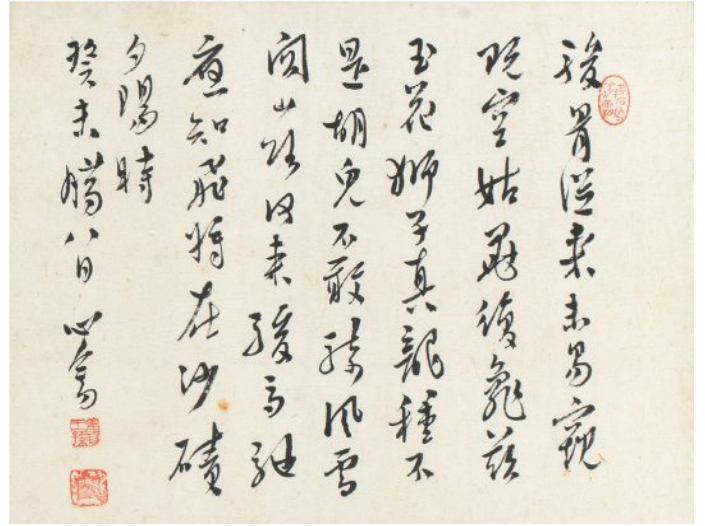 駿骨從來未易窺
既空姑
復龜茲
玉花獅子真龍種不
是胡兒不敢騎風雪
關山路日未緩
應知飛將在沙磧
夕陽時
癸未臘八日 心畬